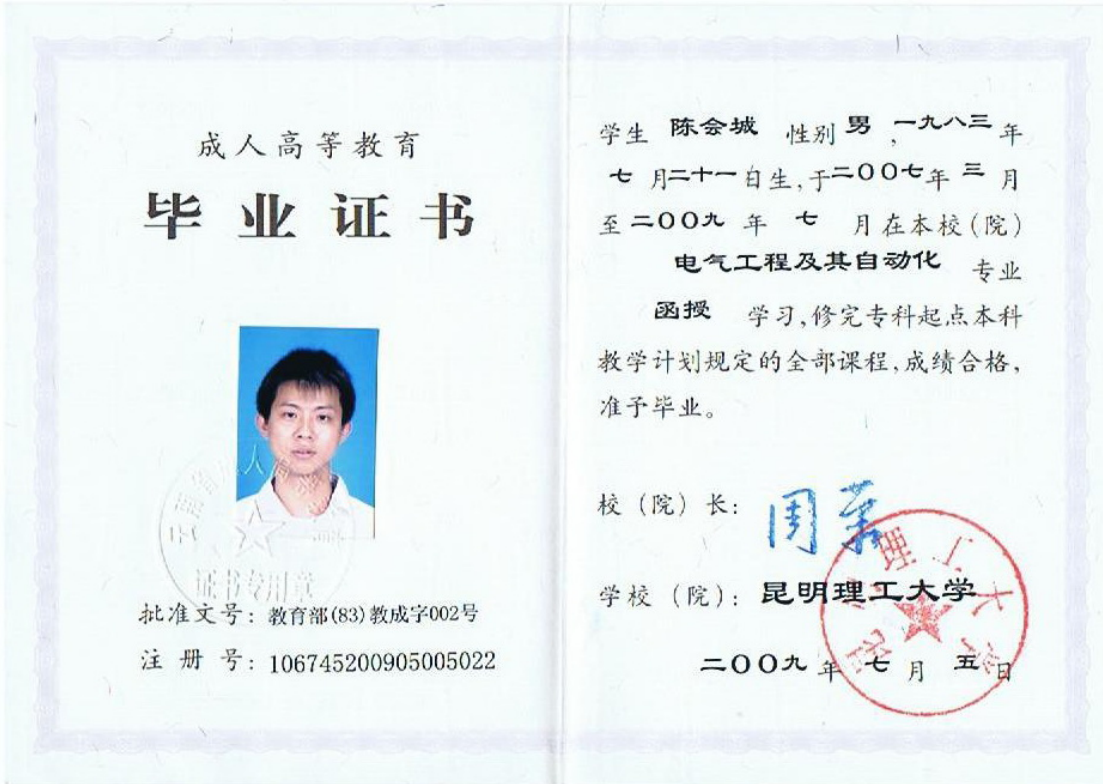 成人高等教育
毕业证书
证书专用章
批准文号：教育部(83)教成字002号
注 册 号：106745200905005022
学生 陈会城 性别 男，一九八三年
七 月二十一日生，于二〇〇七年 三 月
至 二〇〇九 年 七 月在本校（院）
电气工程及其自动化 专业
函授 学习，修完专科起点本科
教学计划规定的全部课程，成绩合格，
准予毕业。
校（院）长：
学校（院）：昆明理工大学
二〇〇九 年 七 月 五 日
昆明理工大学